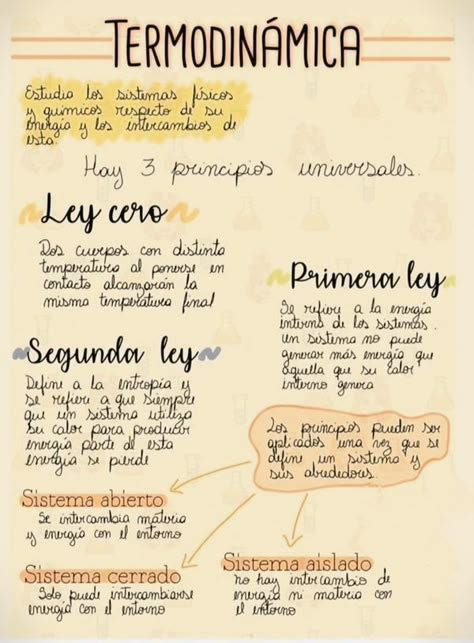 TERMODINÁMICA
Estudia los sistemas físicos
y químicos respecto de su
energía y los intercambios de
esta.
Hay 3 principios universales.
Ley cero
Dos cuerpos con distinta
temperatura al ponerse en
contacto alcanzarán la
misma temperatura final
Primera ley
Se refiere a la energía
interna de los sistemas.
un sistema no puede
generar más energía que
aquella que su calor
interno genera
Segunda ley
Define a la entropia y
se refiere a que siempre
que un sistema utiliza
su calor para producir
energía parte de esta
energía se pierde
Los principios pueden ser
aplicados una vez que se
define un sistema y
sus alrededores.
Sistema abierto
Se intercambia materia
y energía con el entorno
Sistema cerrado
Solo puede intercambiarse
energía con el entorno
Sistema aislado
no hay intercambio de
energía ni materia con
el entorno